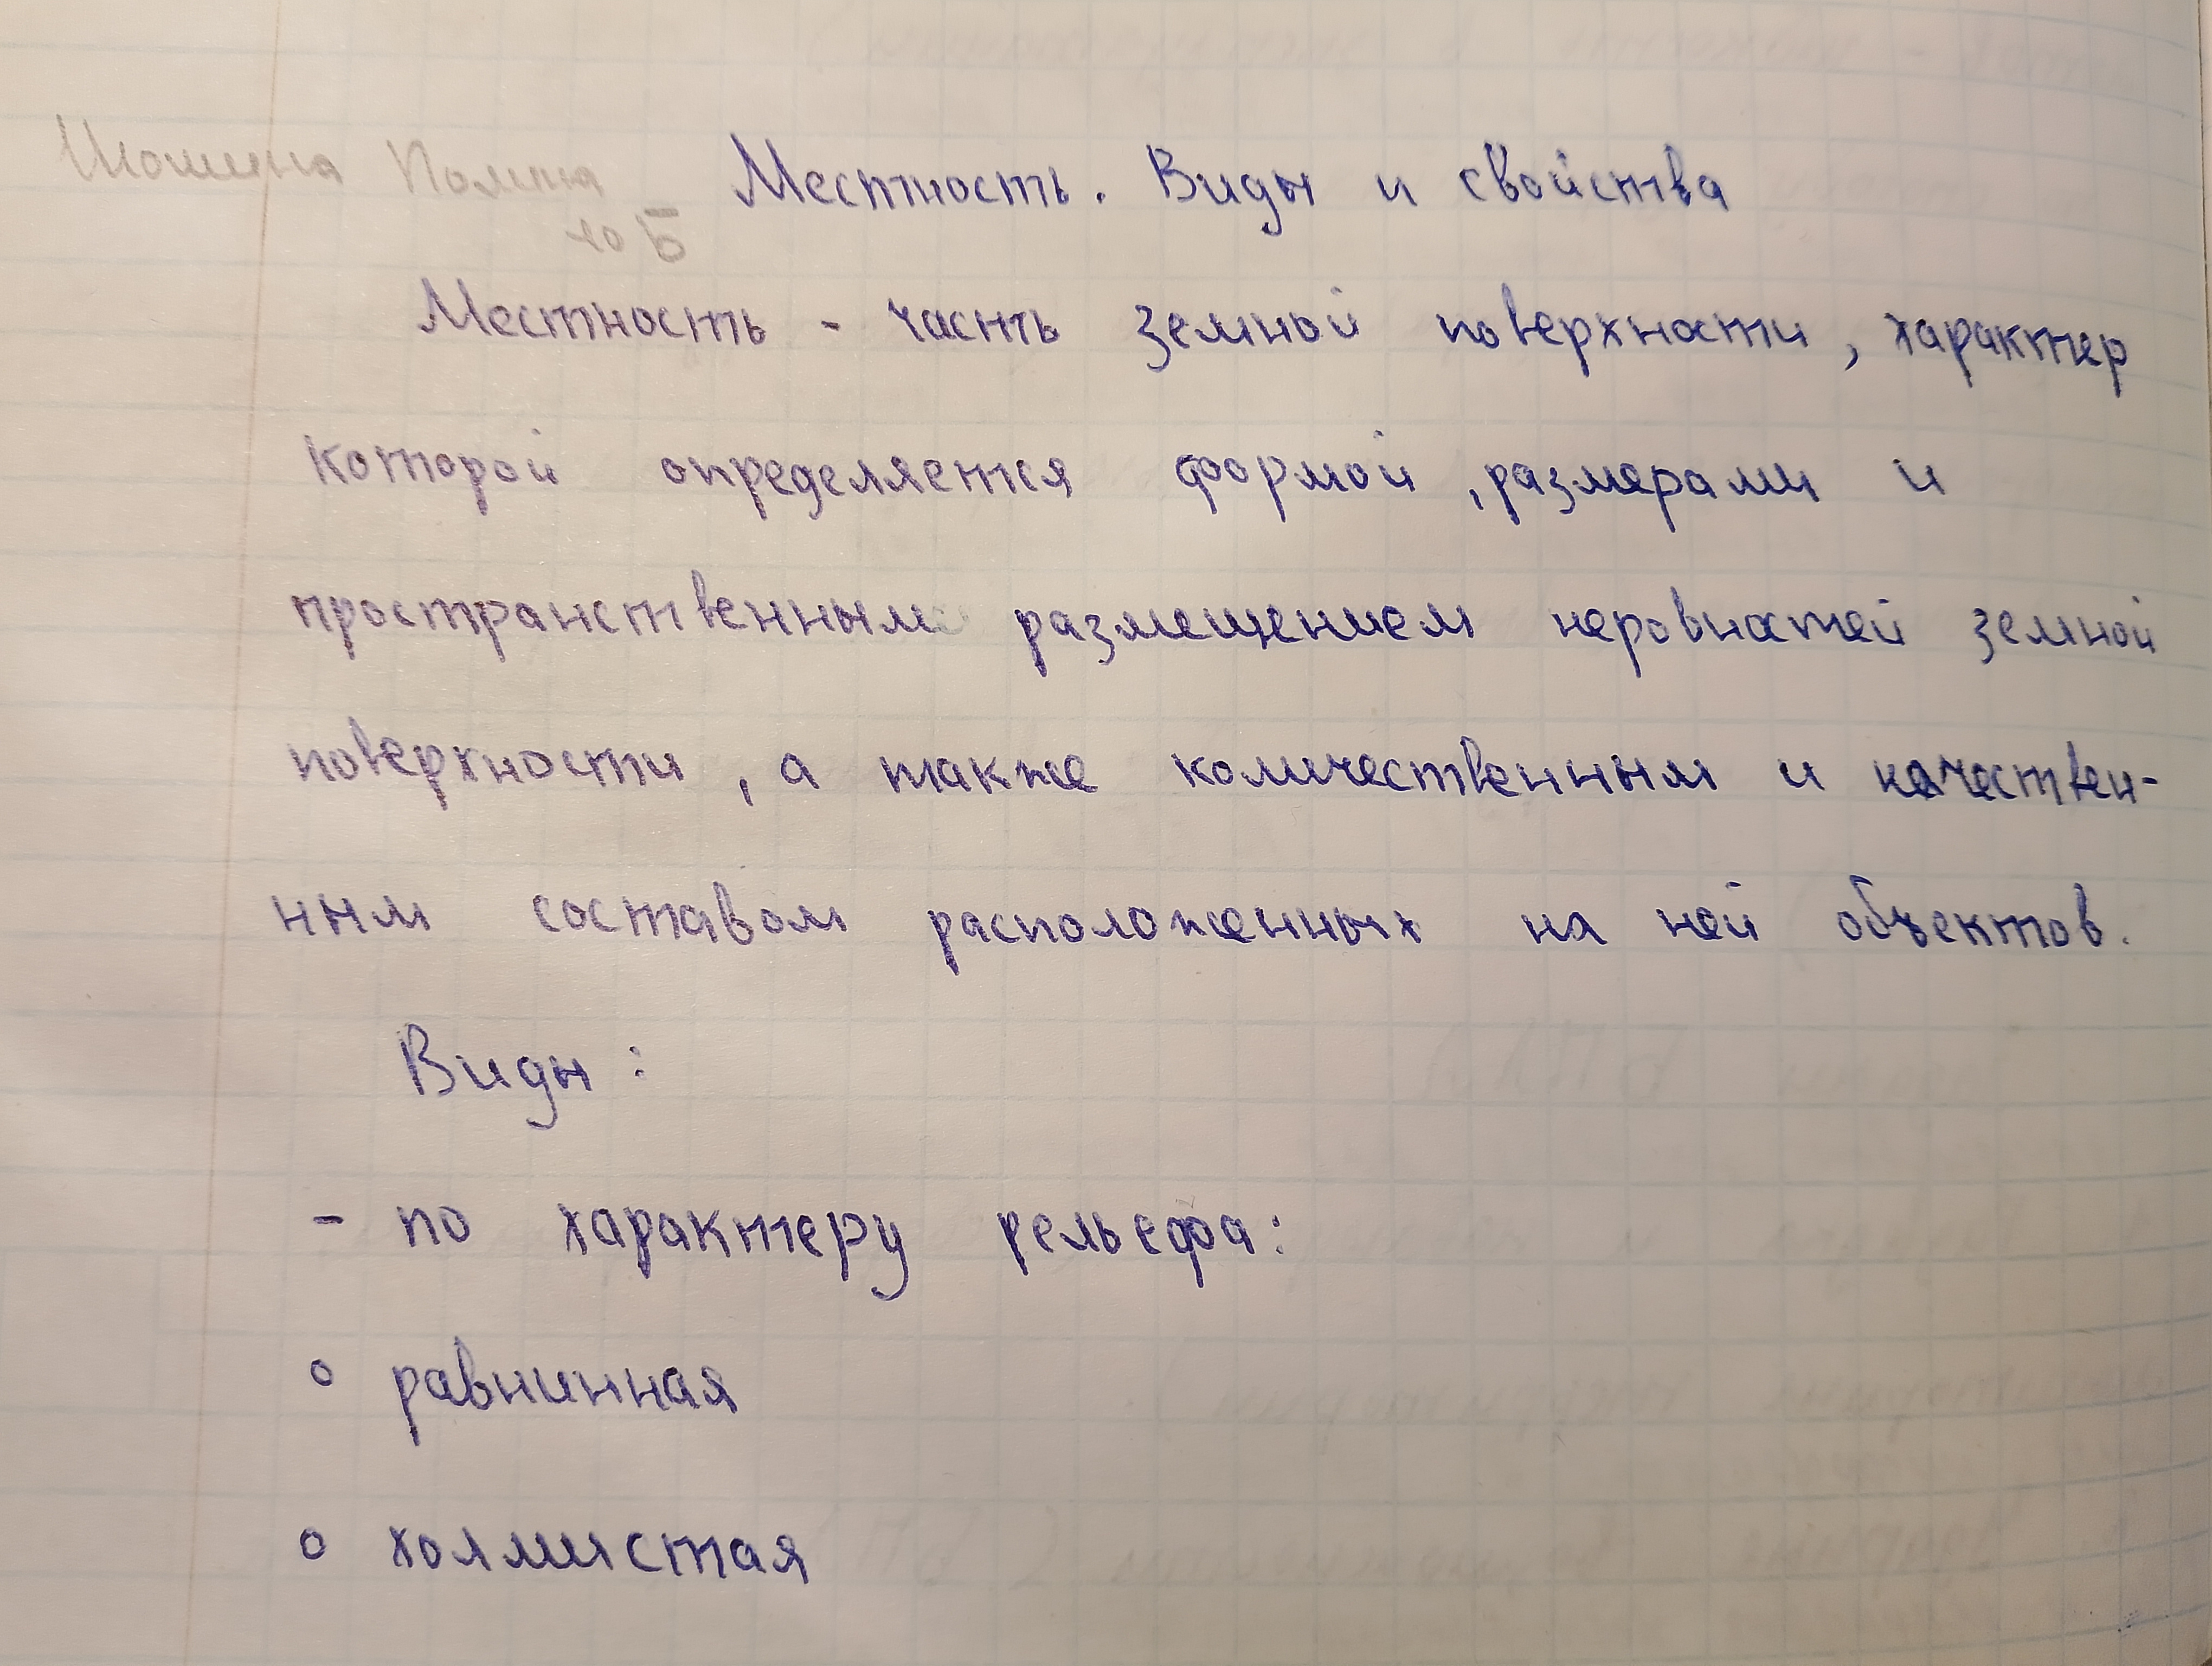 Шошина Полина
10 Б
Местность. Виды и свойства
Местность - часть земной поверхности, характер
которой определяется формой, размерами и
пространственным размещением неровностей земной
поверхности, а также количественным и качествен-
ным составом расположенных на ней объектов.
Виды:
- по характеру рельефа:
о равнинная
о холмистая